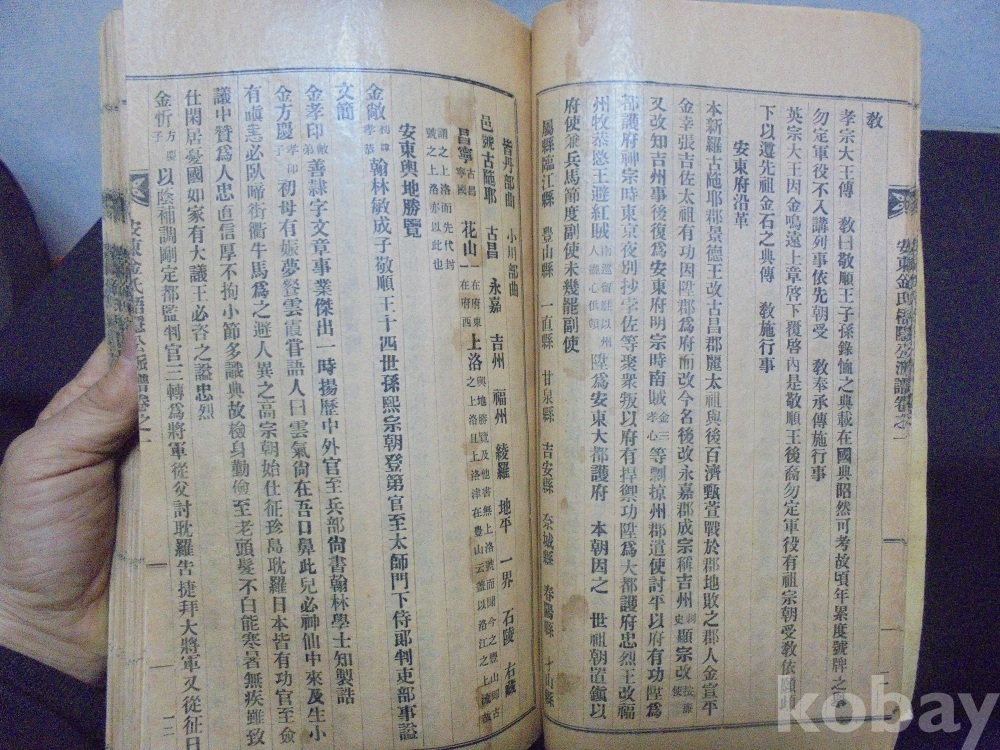 教
孝宗大王傳 教曰敬順王子孫錄恤之典載在國典昭然可考故頃年累度號牌之
勿定軍役不入講列事依先朝受 教奉承傳施行事
英宗大王因金鳴遠上章啓下覆啓內是敬順王後裔勿定軍役有祖宗朝受教依
下以遵先祖金石之典傳 教施行事
安東府沿革
本新羅古陁耶郡景德王改古昌郡麗太祖與後百濟甄萱戰於郡地敗之郡人金宣平
金幸張吉佐太祖有功因陞郡爲府而改今名後改永嘉郡成宗稱吉州刺史顯宗改按廉使
又改知吉州事後復爲安東府明宗時南賊金三孝心等剽掠州郡遣使討平以府有功陞爲
都護府神宗時東京夜別抄孛佐等聚衆叛以府有捍禦功陞爲大都護府忠烈王改福
州牧恭愍王避紅賊南巡駐以州人盡心陞爲安東大都護府 本朝因之 世祖朝置鎭以
府使兼兵馬節度副使未幾罷副使
屬縣臨江縣 豊山縣 一直縣 甘泉縣 吉安縣 奈城縣 春陽縣 才山縣
皆丹部曲 小川部曲
邑號古陁耶 古昌 永嘉 吉州 福州 綾羅 地平 一界 石陵 古藏
昌寧古昌寧國 花山在府東一在府西 上洛輿地勝覽及他書無上洛號而聞今之豊山卽古之上洛且上洛津在豊山云蓋以洛江之上流
謂之上洛而先代封號之上洛亦以此也
安東輿地勝覽
金敞初諱孝恭 翰林敏成子敬順王十四世孫熙宗朝登第官至太師門下侍郞判吏部事謚
文簡
金孝印敞弟 善隸字文章事業傑出一時揚歷中外官至兵部尙書翰林學士知製誥
金方慶孝印子 初母有娠夢餐雲霞嘗語人曰雲氣尙在吾口鼻此兒必神仙中來及生小
有嗔恚必臥啼街衢牛馬爲之避人異之高宗朝始仕征珍島耽羅日本皆有功官至僉
議中贊爲人忠直信厚不拘小節多識典故檢身勤儉至老頭髮不白能寒暑無疾雖致
仕閑居憂國如家有大議王必咨之謚忠烈
金忻方慶子 以陰補調剛定都監判官三轉爲將軍從父討耽羅告捷拜大將軍又從征日